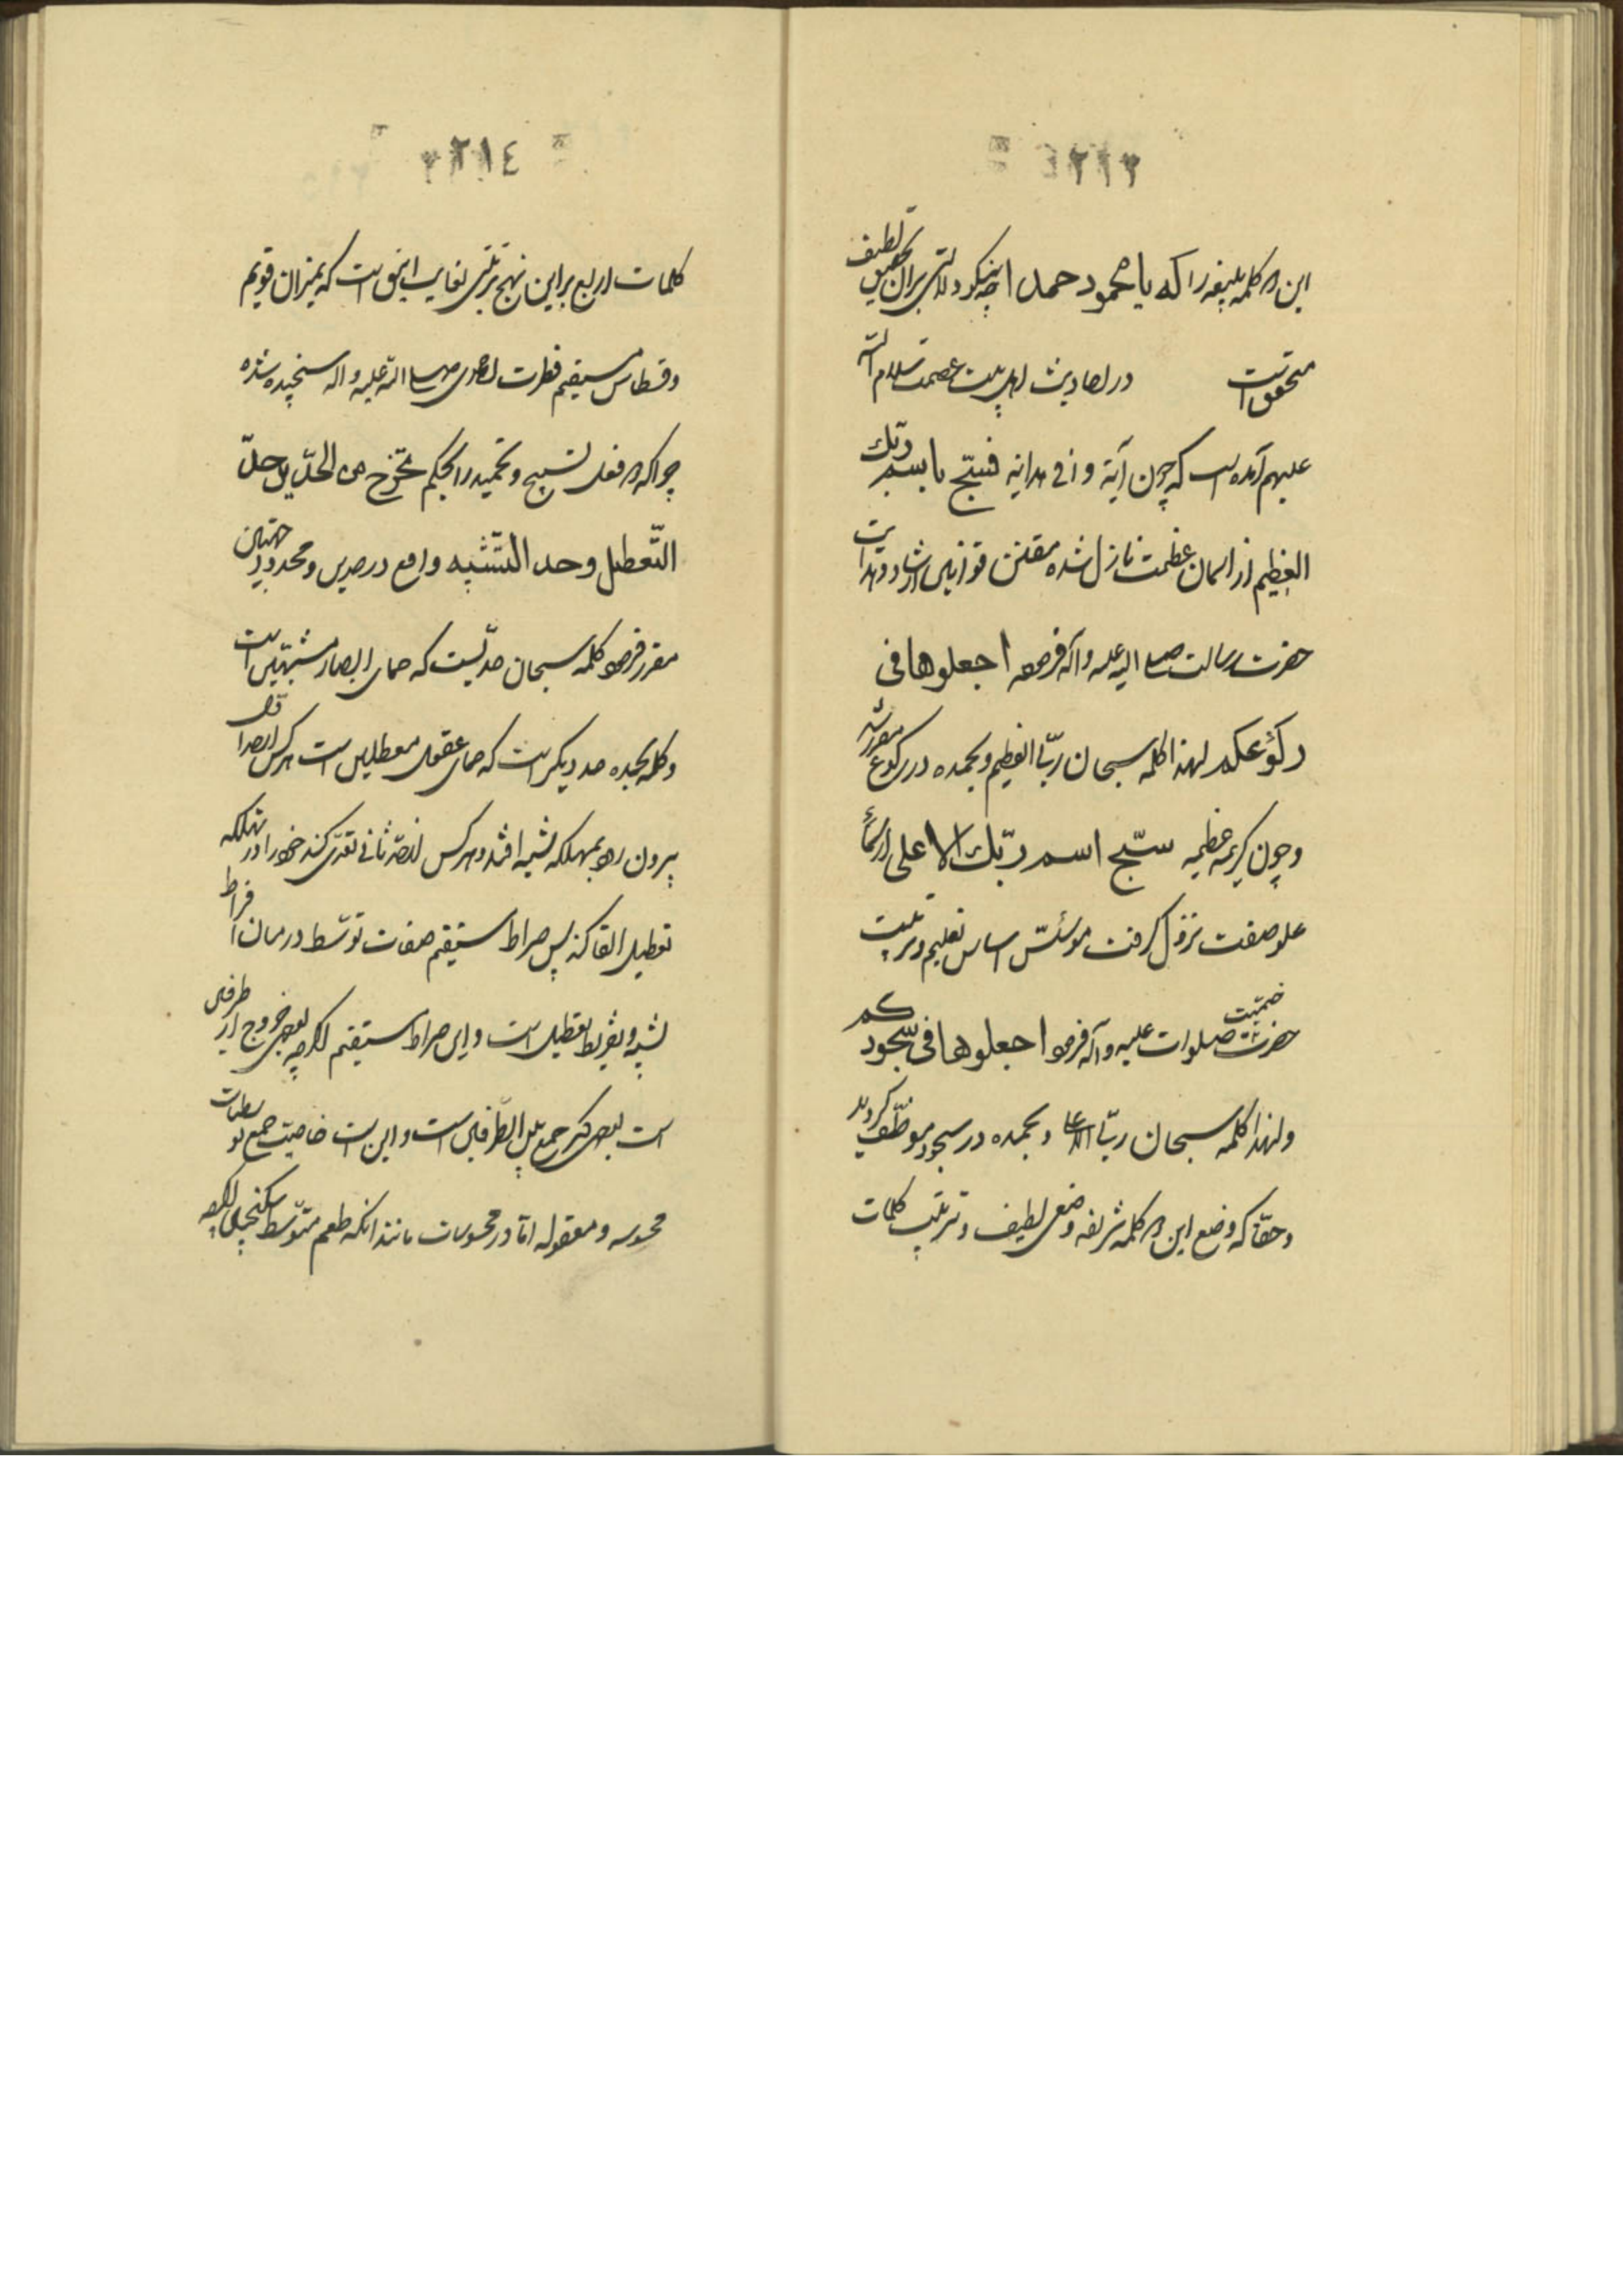 ٢١٣
این دو کلمه بلیغه را که یا محمود حمدا چه نیکو دلالتی بر آن تحقیق لطیف
متحقق است در احادیث اهل بیت عصمت سلام الله
علیهم آمده است که چون آیة وافی هدایه فسبّح باسم ربّک
العظیم از آسمان عظمت نازل شده مقنن قوانین ارشاد و هدایت
حضرت رسالت صلی الله علیه وآله فرموده اجعلوها فی
رکوعکم لهذا کلمه سبحان ربّی العظیم وبحمده در رکوع مقرر شد
وچون کریمه عظیمه سبّح اسم ربّک الاعلی از سماء
علو صفت نزول گرفت مؤسّس اساس تعلیم وتربیت
حضرت ختمیّت صلوات علیه وآله فرمود اجعلوها فی سجودکم
ولهذا کلمه سبحان ربّی الاعلی وبحمده در سجود موظّف گردید
وحقّا که وضع این دو کلمه شریفه وضعی لطیف وترتیب کلمات
٢١٤
کلمات اربع براین نهج ترتیبی بغایت انیق است که بمیزان قویم
وقسطاس مستقیم فطرت احمدی صلی الله علیه وآله سنجیده شده
چرا که دو فعل تسبیح وتحمید را بحکم تخرج من الحدّین حدّ
التّعطیل وحد التّشبیه واقع در حدین ومحدود بحدین
مقرر فرموده کلمه سبحان حدّیست که حمای ابصار مشبّهین است
وکلمه بحمده حد دیگر است که حمای عقول معطلین است هرکس از حد اول
بیرون رود بمهلکه تشبیه افتد وهرکس از حد ثانی تعدّی کند خود را در تهلکه
تعطیل القا کند پس صراط مستقیم صفات توسّط در میان افراط
تشبیه وتفریط تعطیل است واین صراط مستقیم اگرچه بوجهی خروج از طرفین
است بوجهی دیگر جمع بین الطّرفین است واین است خاصیّت جمیع توسّطات
محسوسه ومعقوله امّا در محسوسات مانند آنکه طعم متوسّط سکنجبین اگرچه